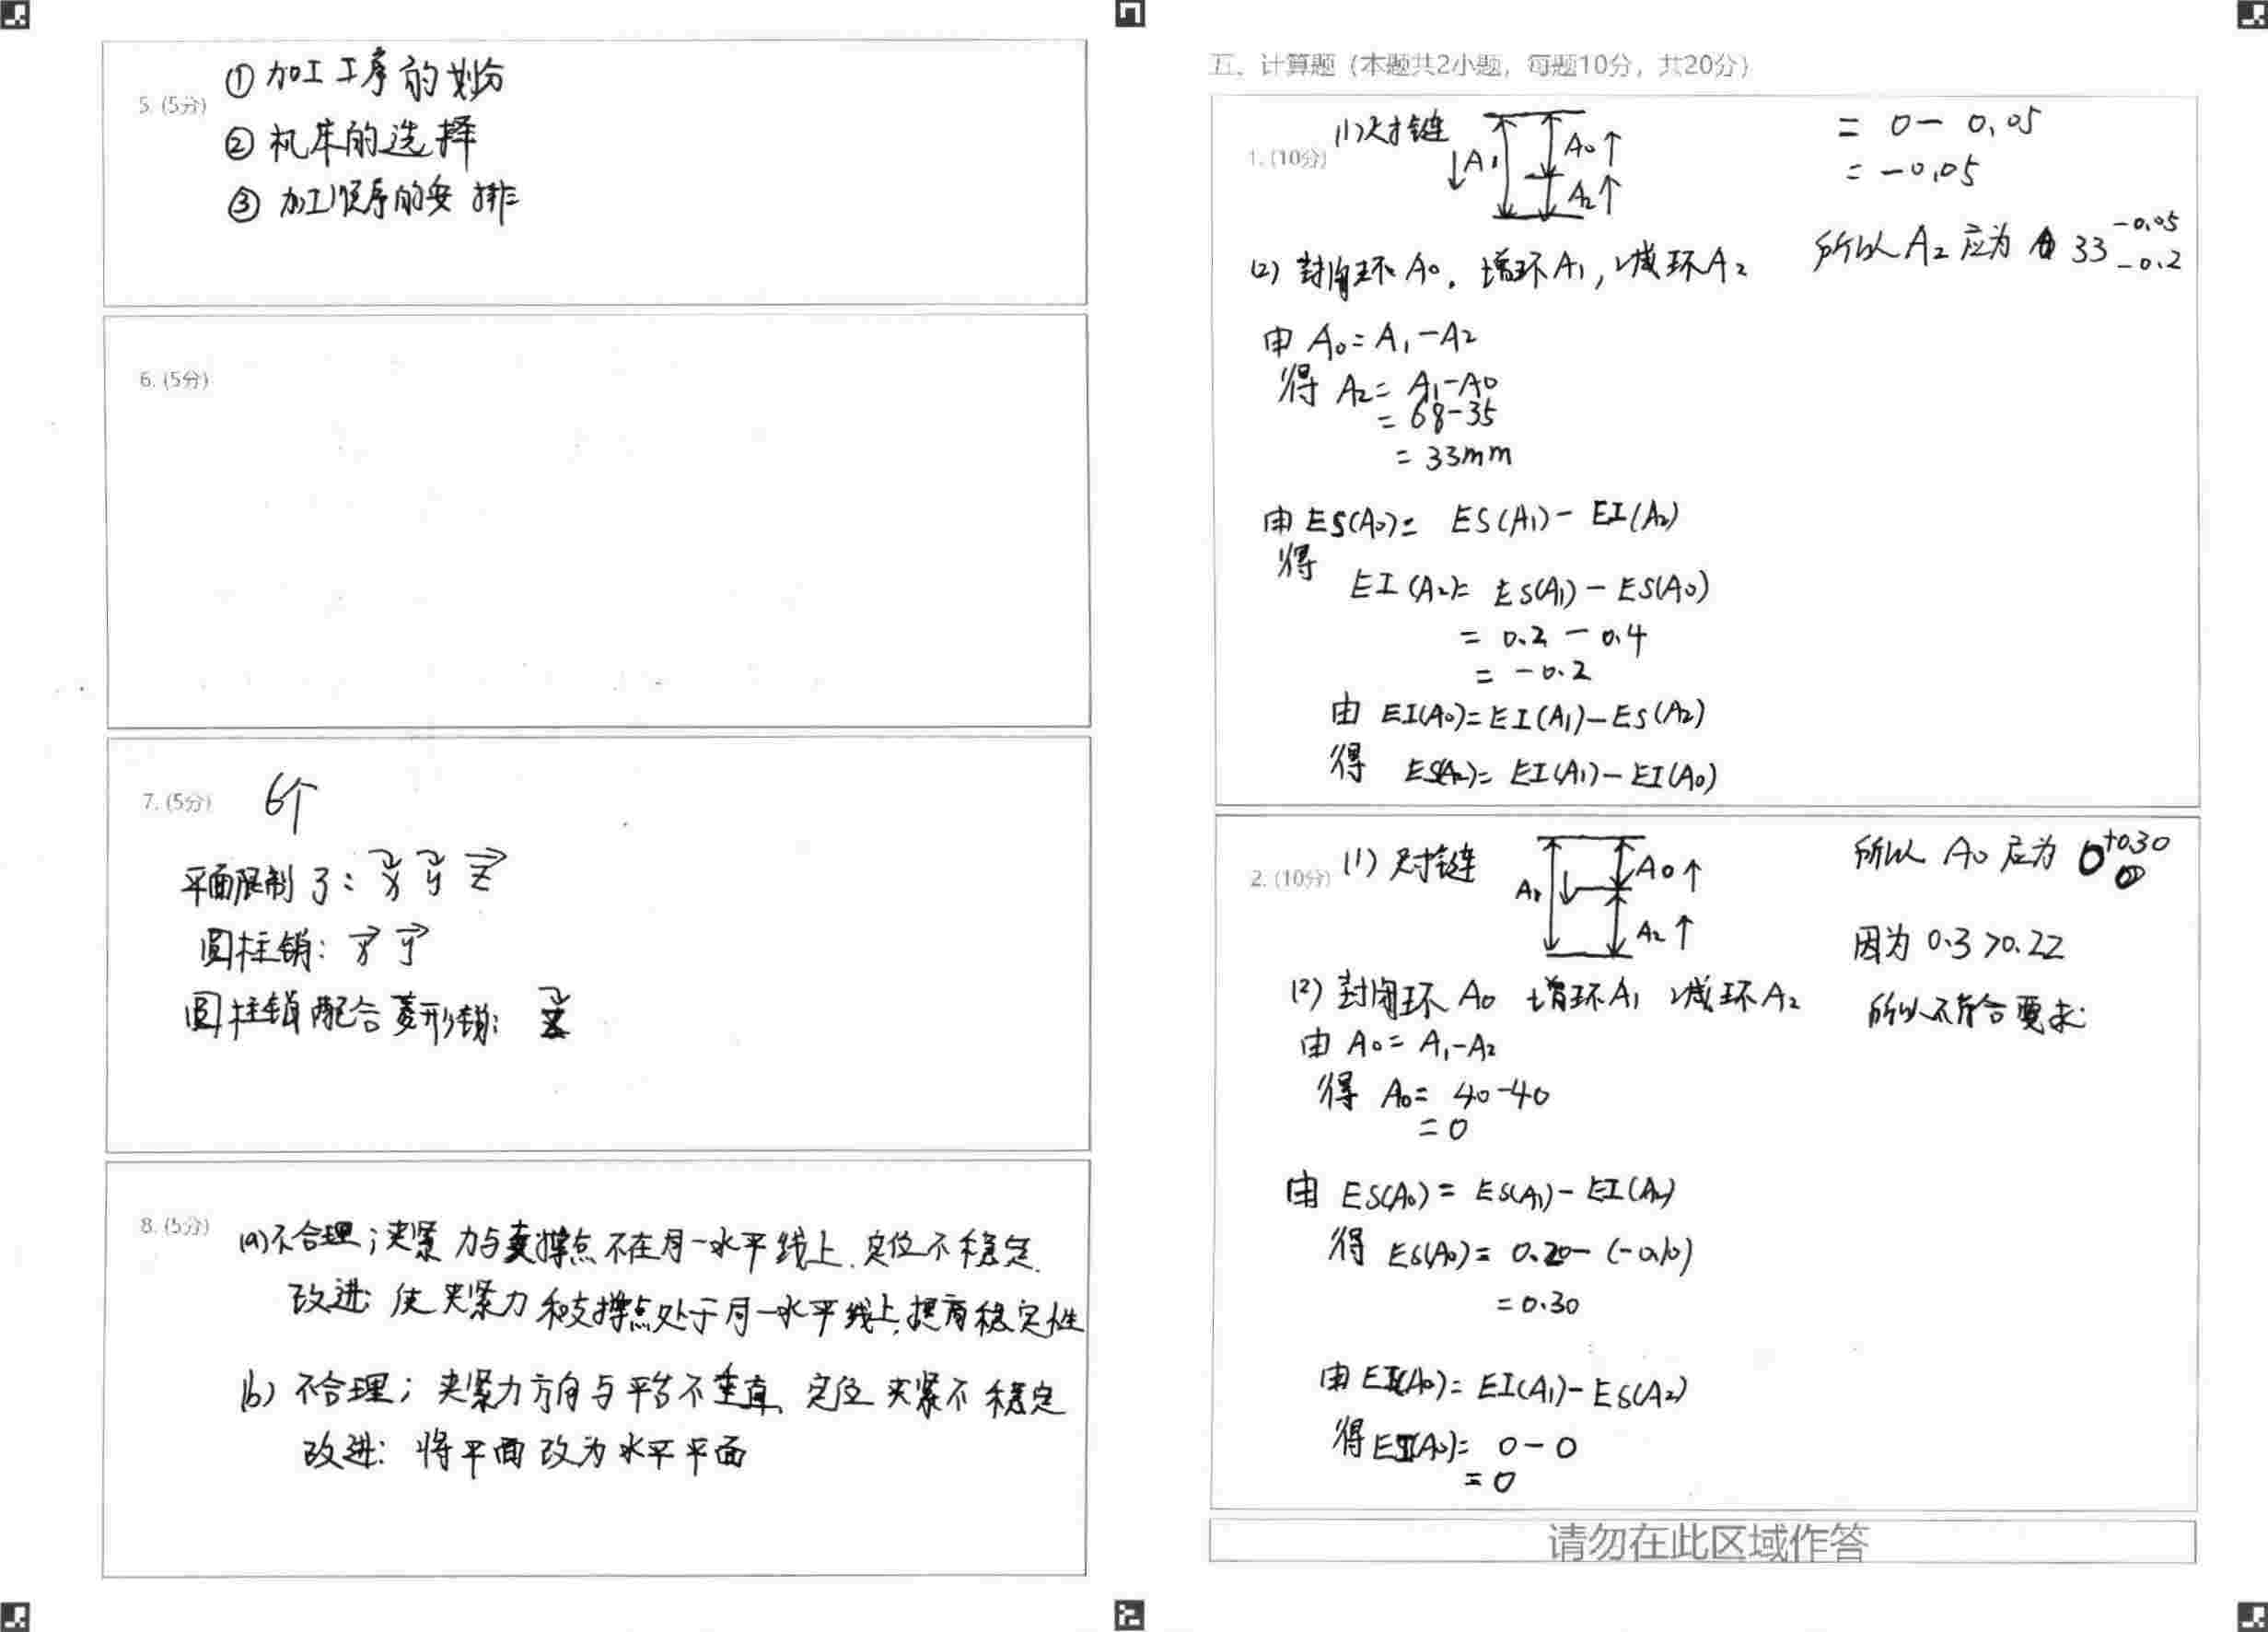 5. (5分)
① 加工工序的划分
② 机床的选择
③ 加工顺序的安排
6. (5分)
7. (5分) 6个
平面限制了: x y z
圆柱销: x y
圆柱销配合菱形销: z
8. (5分) (a)不合理；夹紧力与支撑点不在同一水平线上.定位不稳定.
改进: 使夹紧力和支撑点处于同一水平线上,提高稳定性
(b) 不合理；夹紧力方向与平台不垂直、定位夹紧不稳定
改进: 将平面改为水平平面
五、计算题（本题共2小题，每题10分，共20分）
1. (10分) (1)尺寸链
↓A1 A0↑
A2↑
(2) 封闭环A0, 增环A1, 减环A2
由 A0=A1-A2
得 A2= A1-A0
= 68-35
= 33mm
由ES(A0)= ES(A1)- EI(A2)
得
EI(A2)= ES(A1)-ES(A0)
= 0.2-0.4
= -0.2
由 EI(A0)=EI(A1)-ES(A2)
得 ES(A2)= EI(A1)-EI(A0)
= 0-0.05
= -0.05
所以A2应为 33 -0.05 -0.2
2. (10分) (1) 尺寸链
A1 ↓ A0↑
A2↑
(2) 封闭环A0 增环A1 减环A2
由 A0= A1-A2
得 A0= 40-40
=0
由 ES(A0)= ES(A1)-EI(A2)
得 ES(A0)= 0.20-(-0.10)
=0.30
由EI(A0)= EI(A1)-ES(A2)
得EI(A0)= 0-0
=0
所以 A0应为 0 +0.30 0
因为 0.3>0.22
所以不符合要求.
请勿在此区域作答